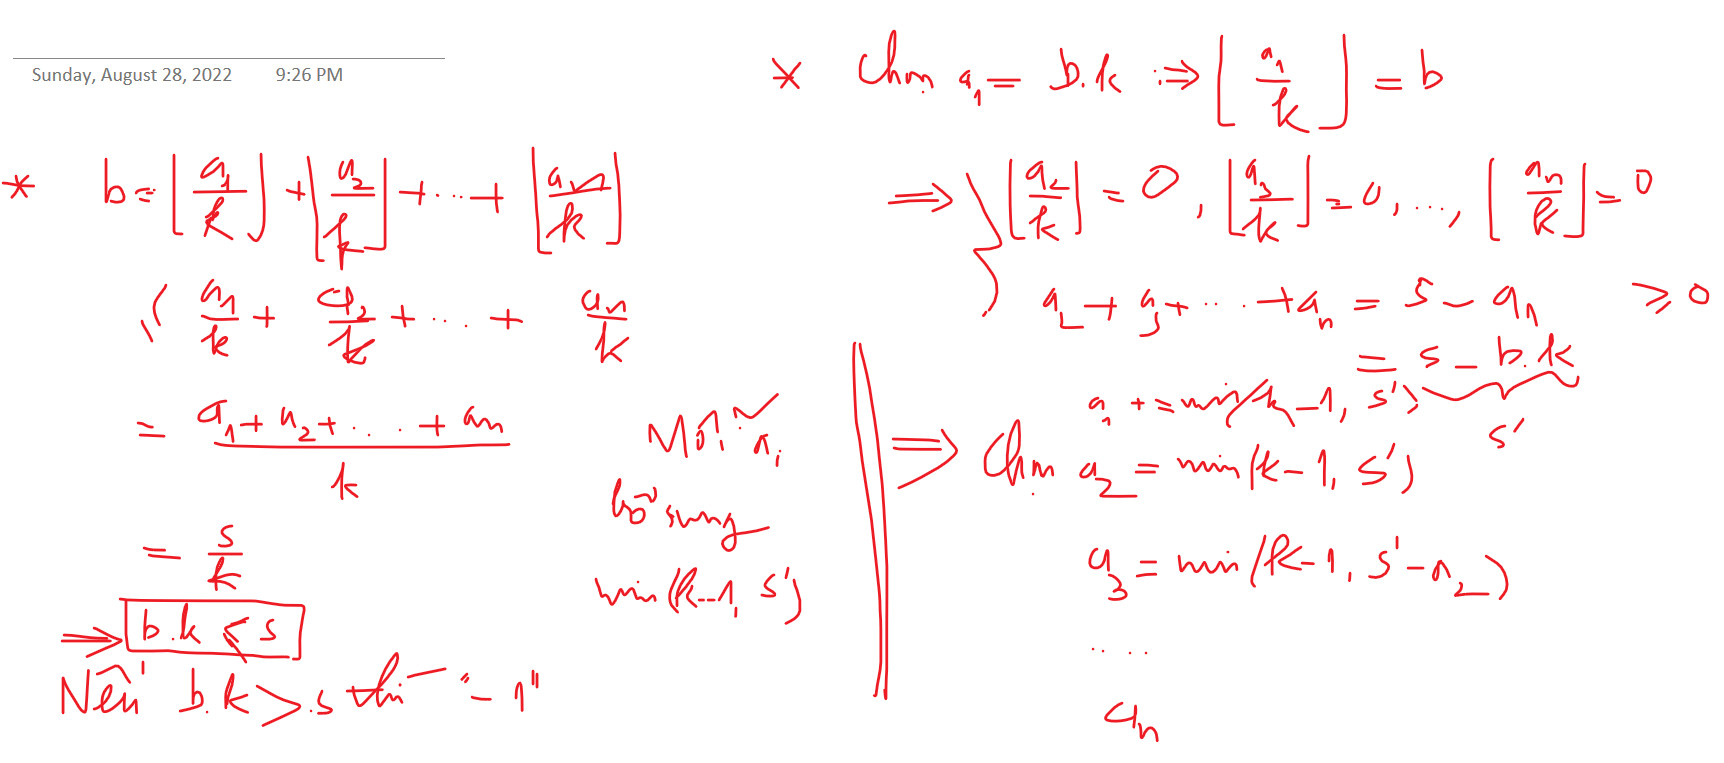 Sunday, August 28, 2022 9:26 PM
* b = ⌊a₁/k⌋ + ⌊a₂/k⌋ + ... + ⌊aₙ/k⌋
≤ a₁/k + a₂/k + ... + aₙ/k
= (a₁ + a₂ + ... + aₙ)/k
= s/k
⇒ b.k ≤ s
Nếu b.k > s thì "-1"
Mỗi aᵢ
bổ sung
min(k-1, s')
* Chọn a₁ = b.k ⇒ ⌊a₁/k⌋ = b
⇒ { ⌊a₂/k⌋ = 0, ⌊a₃/k⌋ = 0, ..., ⌊aₙ/k⌋ = 0
a₂ + a₃ + ... + aₙ = s - a₁ ≥ 0
= s - b.k
s'
a₁ += min(k-1, s')
⇒ Chọn a₂ = min(k-1, s')
a₃ = min(k-1, s'-a₂)
....
aₙ